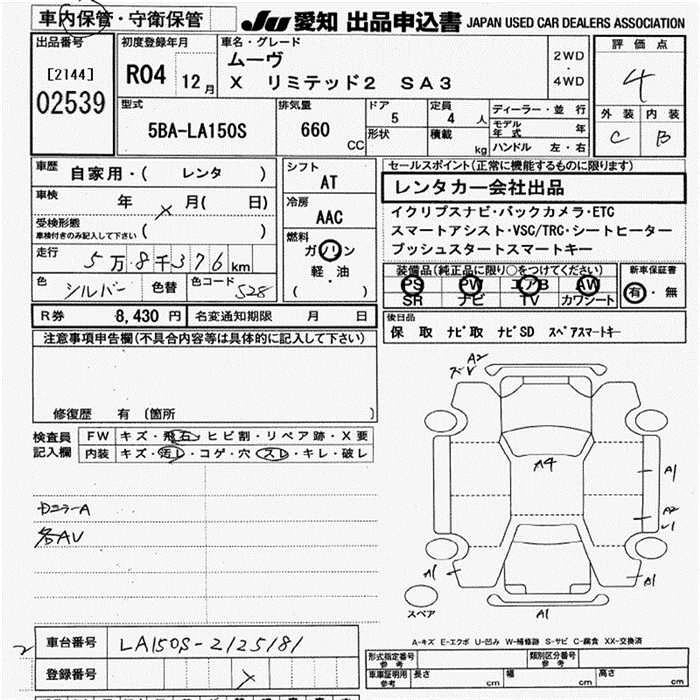 車内保管・守衛保管
JU 愛知 出品申込書 JAPAN USED CAR DEALERS ASSOCIATION
出品番号
[2144]
02539
初度登録年月
R04 12月
車名・グレード
ムーヴ
X リミテッド2 SA3
2WD
・
4WD
評価点
4
外装 内装
C B
型式
5BA-LA150S
排気量
660 CC
ドア
5
形状
定員
4 人
積載
kg
ディーラー・並行
モデル年式 年
ハンドル 左・右
車歴
自家用・( レンタ )
車検
年 月( 日)
受検形態
車検付きのみ記入して下さい ( )
走行
5万8千376km
色
シルバー
色替
色コード
S28
シフト
AT
冷房
AAC
燃料
ガソリン
軽・油
( )
セールスポイント(正常に機能するものに限ります)
レンタカー会社出品
イクリプスナビ・バックカメラ・ETC
スマートアシスト・VSC/TRC・シートヒーター
プッシュスタートスマートキー
装備品(純正品に限り○をつけてください)
PS PW エアB AW
SR ナビ TV カワシート
新車保証書
有・無
R券 8,430 円 名変通知期限 月 日
後日品
保 取 ナビ取 ナビSD スペアスマートキー
注意事項申告欄(不具合内容等は具体的に記入して下さい)
修復歴 有 〔箇所 〕
検査員
記入欄
FW キズ・飛石・ヒビ割・リペア跡・X要
内装 キズ・汚レ・コゲ・穴・スレ・キレ・破レ
DミラーA
各AU
A2
ズレ
A4
A1
A2
A1
A1
A1
スペア
A-キズ E-エクボ U-凹み W-補修跡 S-サビ C-腐食 XX-交換済
車台番号 LA150S-2125181
登録番号
形式指定番号
参考
類別区分番号
参考
車庫証明用
参考
長さ cm 幅 cm 高さ cm